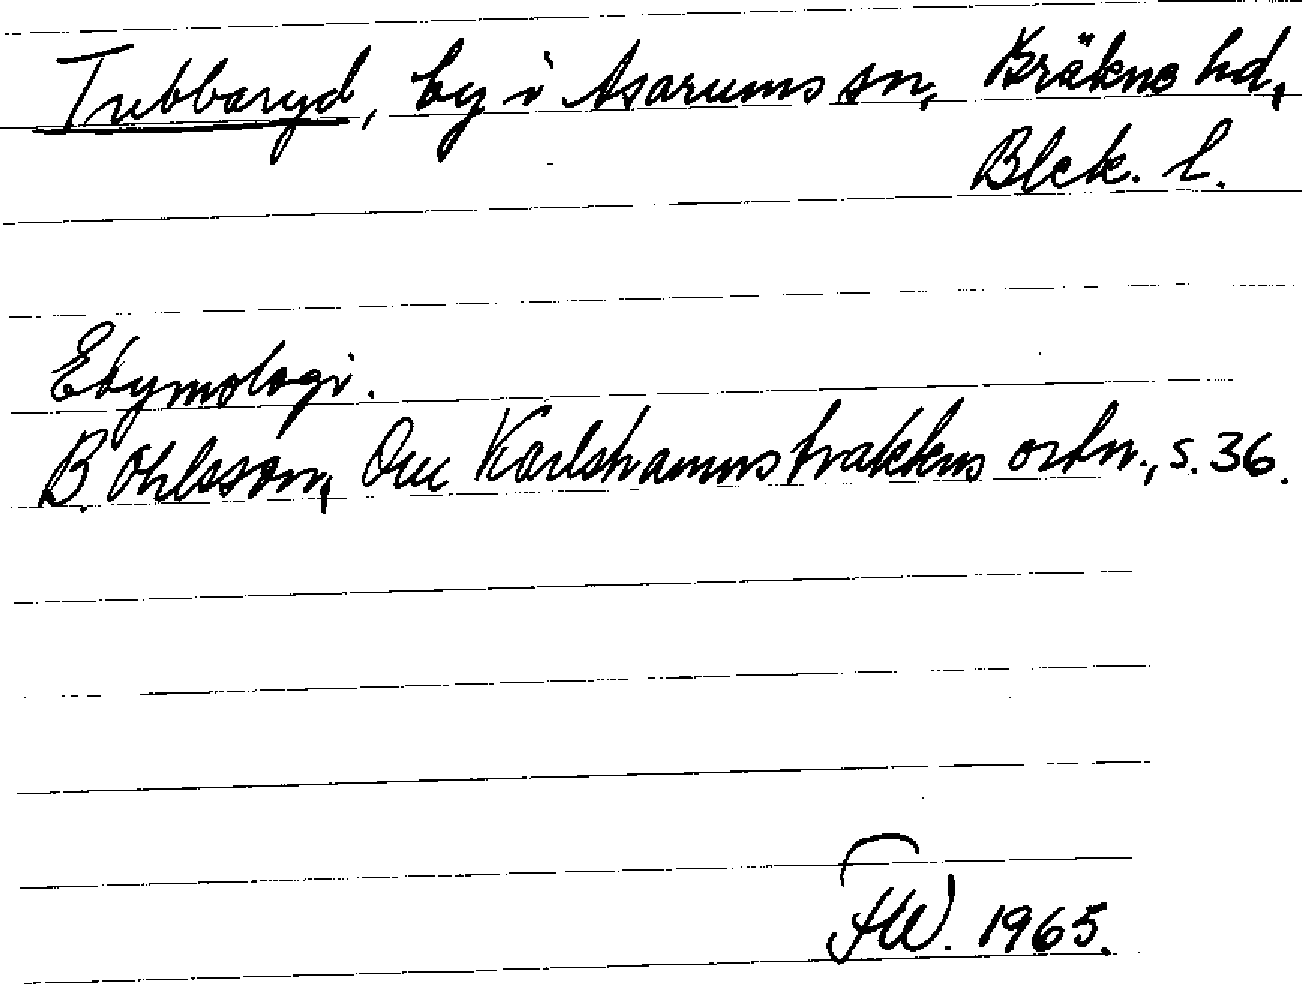 Tubbaryd, by i Asarums sn, Bräkne hd,
Blek. l.
Etymologi.
B. Ohlsson, Om Karlshamnstraktens ortn., s. 36.
FW. 1965.